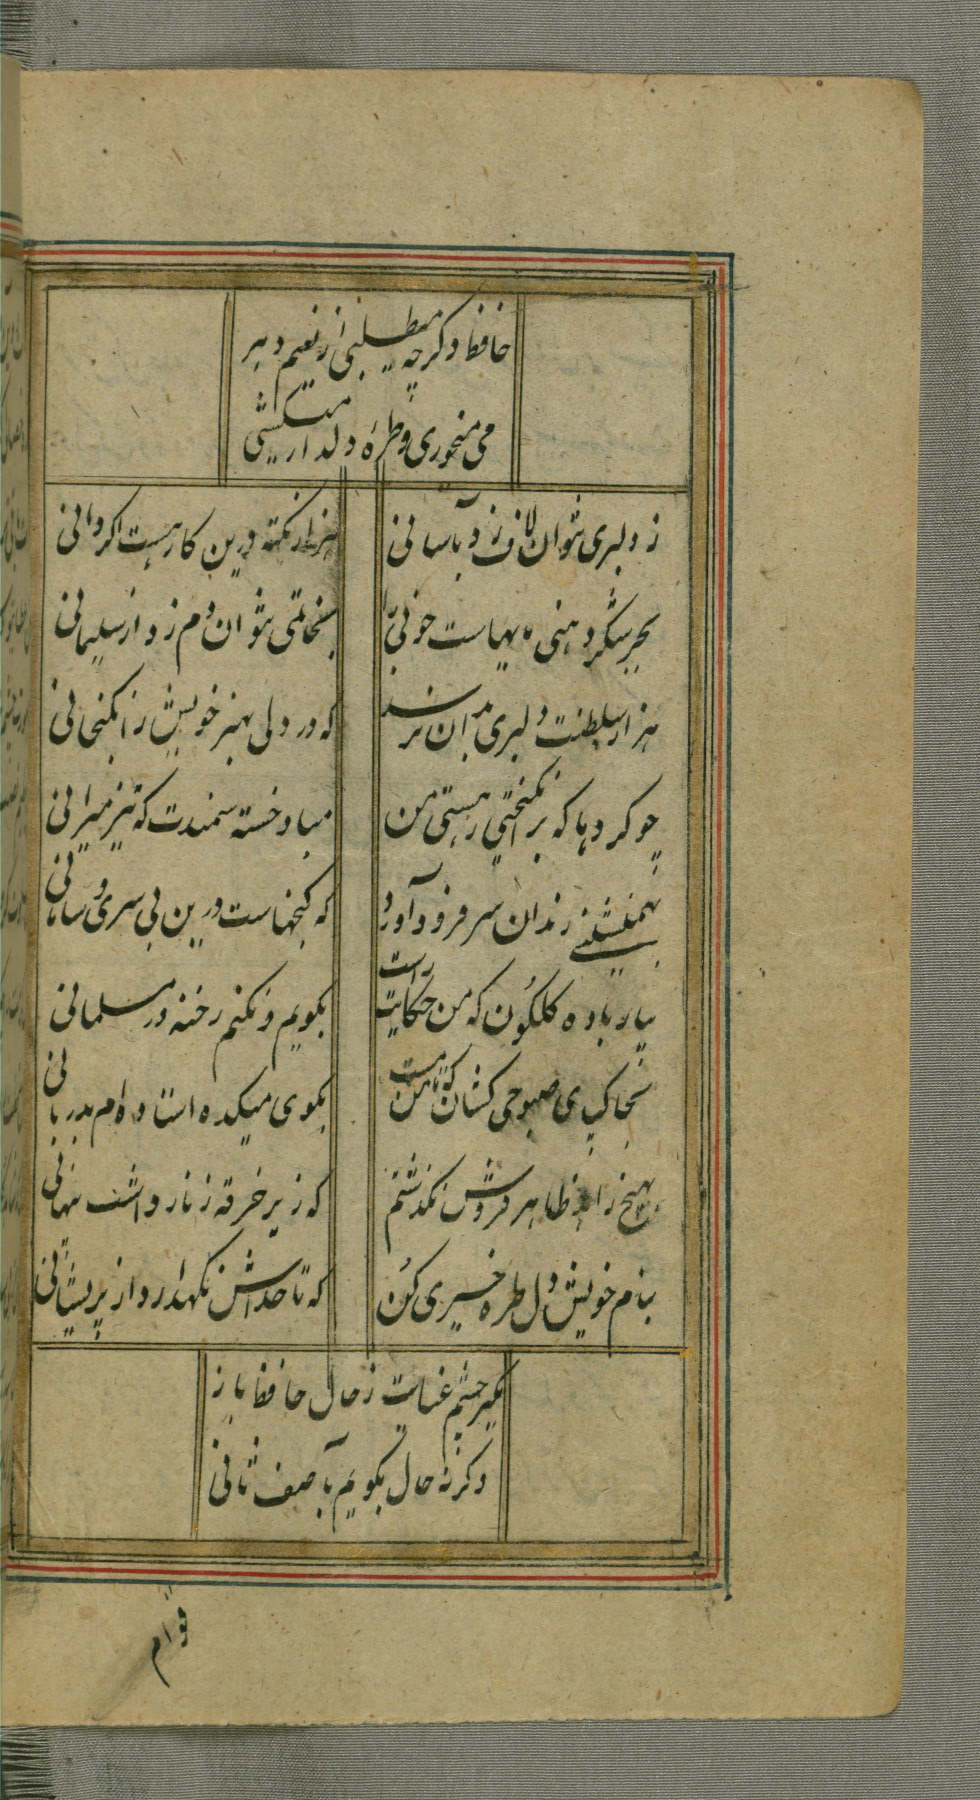 حافظ دکر چه میطلبی از نعیم دهر
می میخوری و طره دلدار میکشی
ز دلبری نتوان لاف زد بآسانی
هزار نکته درین کار هست اکر دانی
بجز شکر دهنی مایهاست خوبی را
بخاتمی نتوان دم زد از سلیمانی
هزار سلطنت دلبری بدان نرسد
که در دلی بهنر خویش را بکنجانی
چو کردها که برانکیختی ز هستی من
مباد خسته سمندت که تیز میرانی
بهمنشینی رندان سر فرود آور
که کنجهاست درین بی سری و سامانی
بیار باده کلکون که من حکایت راست
بکویم و نکنم رخنه در مسلمانی
بخاک پای صبوحی کشان که تا من مست
بکوی میکده استاده ام بدربانی
بهیچ زاهد ظاهر فروش نکذشتم
که زیر خرقه ز نار داشت پنهانی
بنام خویش دل طره خیری کن
که تا خداش نکهدارد از پریشانی
مکیر چشم عنایت ز حال حافظ باز
وکرنه حال بکویم بآصف ثانی
قوام